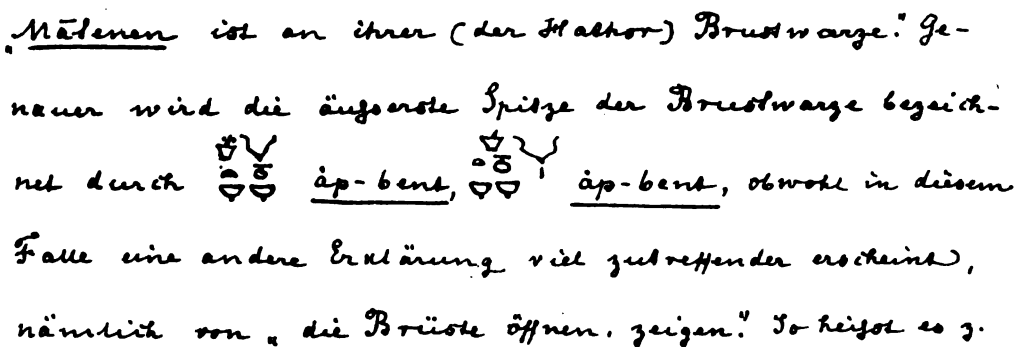 „Mātenen ist an ihrer (der Hathor) Brustwarze.“ Ge-
nauer wird die äußerste Spitze der Brustwarze bezeich-
net durch áp-bent, áp-bent, obwohl in diesem
Falle eine andere Erklärung viel zutreffender erscheint,
nämlich von „die Brüste öffnen, zeigen“. So heißt es z.